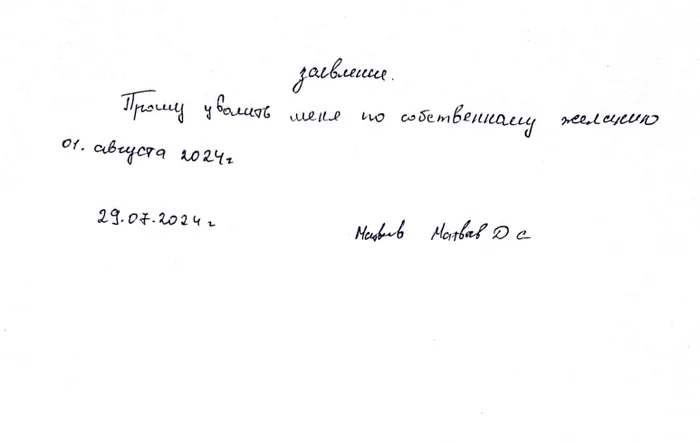 заявление.
Прошу уволить меня по собственному желанию
01. августа 2024г
29.07.2024г Матвеев Матвеев Д С